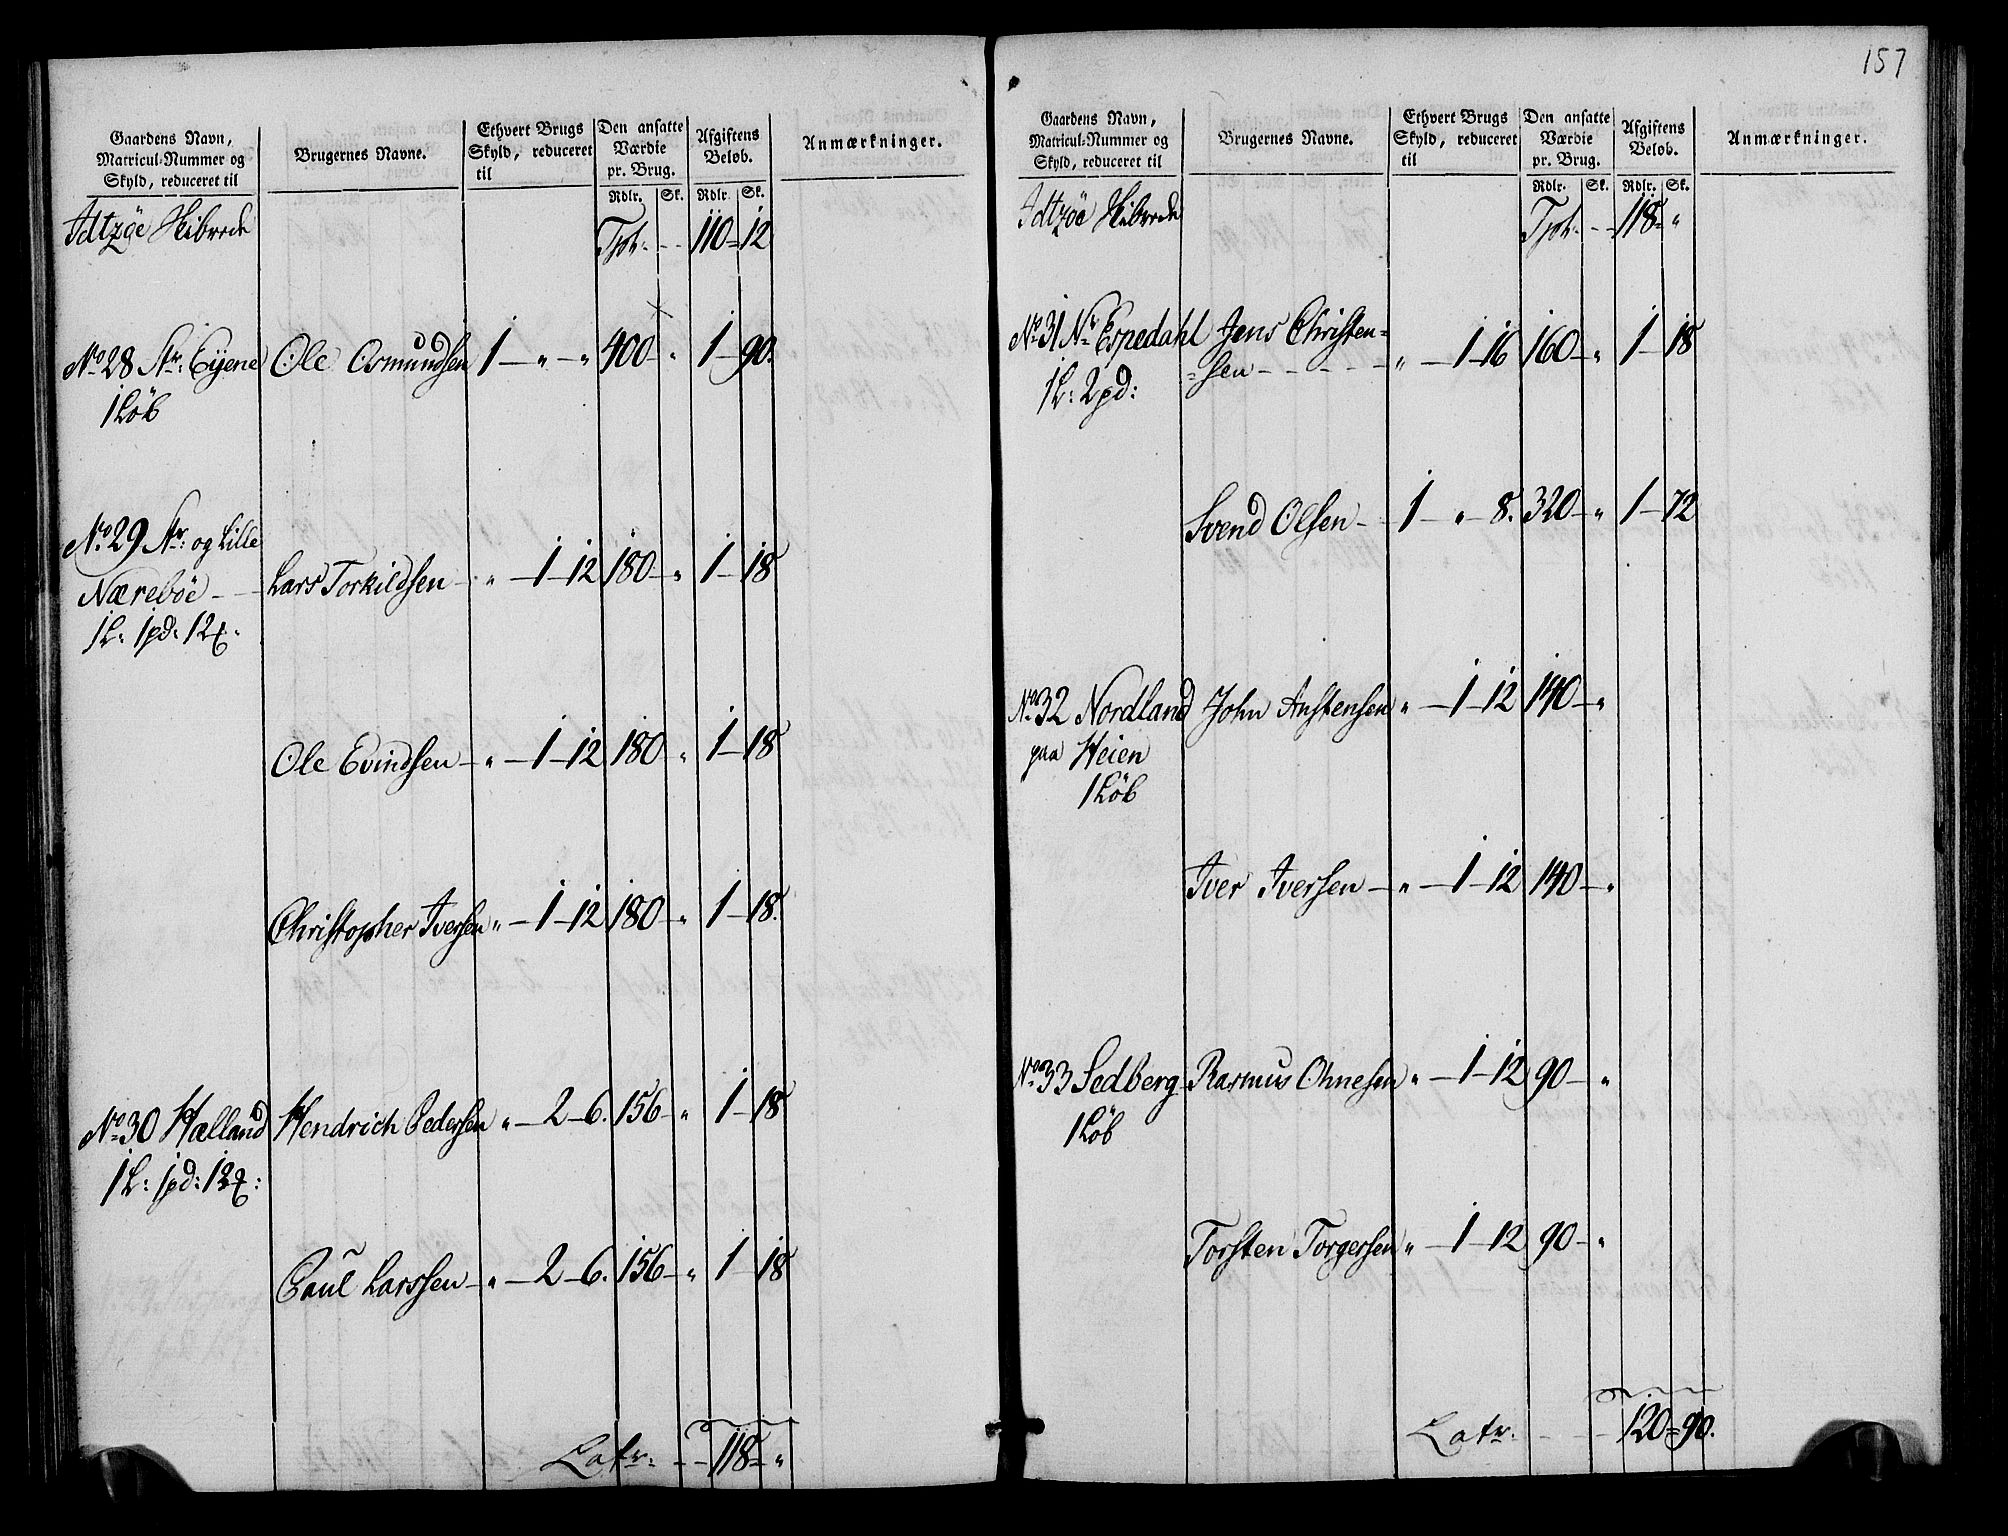 Gaardens Navn, Matricul-Nummer og Skyld, reduceret til | Brugernes Navne. | Ethvert Brugs Skyld, reduceret til | Den ansatte Værdie pr. Brug. Rdlr. Sk. | Afgiftens Beløb. Rdlr. Sk. | Anmærkninger.
Idtzöe Skibrede Tpt: - - 110 = 12
No 28 Str: Eyene Ole Osmundsen 1 - " - " 400 - " 1 - 90.
1 Löb
No 29 Str: og Lille
Næreböe - - Lars Torkildsen - " - 1 - 12 180 - " 1 - 18
1 L: 1 pd: 12
Ole Evindsen - " - 1 - 12 180 - " 1 - 18
Christopher Iversen " - 1 - 12 180 - " 1 - 18.
No 30 Hælland Hendrich Pedersen " - 2 - 6. 156 - " 1 - 18
1 L: 1 pd: 12
Paul Larssen - " - 2 - 6. 156 - " 1 - 18
Latr: - - 118 = "
157
Gaardens Navn, Matricul-Nummer og Skyld, reduceret til | Brugernes Navne. | Ethvert Brugs Skyld, reduceret til | Den ansatte Værdie pr. Brug. Rdlr. Sk. | Afgiftens Beløb. Rdlr. Sk. | Anmærkninger.
Idtzöe Skibrede Tpt: - - 118 = "
No 31 Nr Espedahl Jens Christen=
1 L: 2 pd: =sen - - - - - " - 1 - 16 160 - " 1 - 18
Svend Olsen - 1 - " - 8. 320 - " 1 - 72
No 32 Nordland John Austensen " - 1 - 12 140 - "
paa Heien
1 Löb
Iver Iversen - " - 1 - 12 140 - "
No 33 Sedberg Rasmus Ohnesen " - 1 - 12 90 - "
1 Löb
Torsten Torgersen " - 1 - 12 90 - "
Latr: - - - 120 = 90.